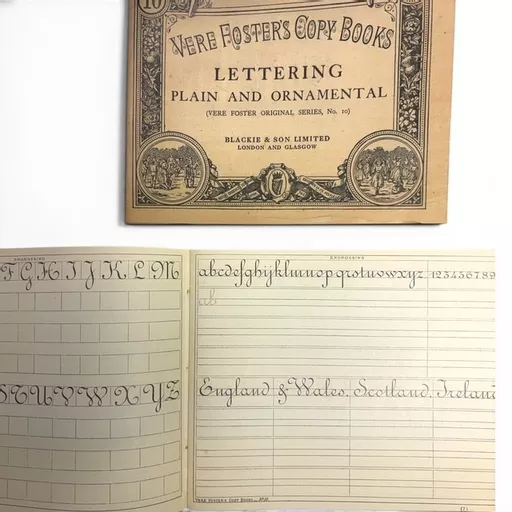 10
VERE FOSTER'S COPY BOOKS
LETTERING
PLAIN AND ORNAMENTAL
(VERE FOSTER ORIGINAL SERIES, No. 10)
BLACKIE & SON LIMITED
LONDON AND GLASGOW
ENGROSSING
F G H I J K L M
S T U V W X Y Z
ENGROSSING
abcdefghijklmnop qrstuvwxyz 123456789
ab
England & Wales. Scotland. Ireland
VERE FOSTER'S COPY BOOKS — No. 10.